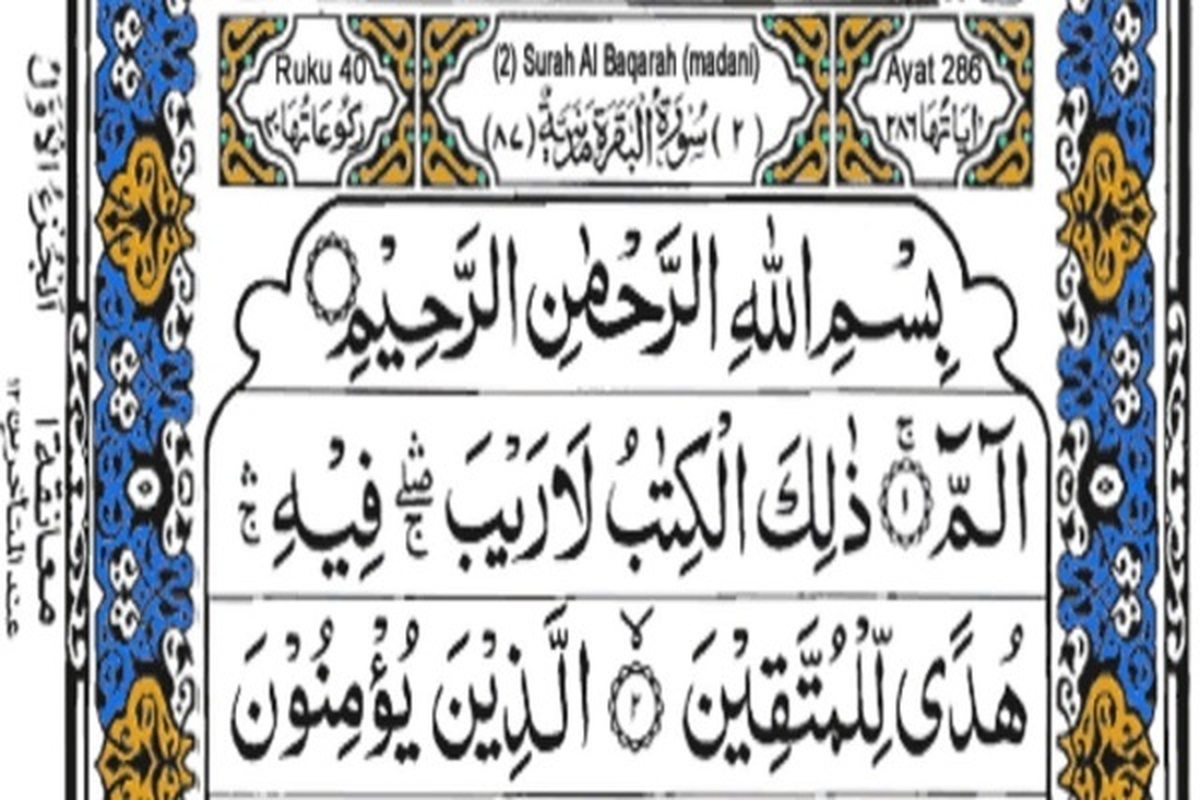 Ruku 40 (2) Surah Al Baqarah (madani) Ayat 286
اٰيَاتُهَا ٢٨٦ (٢) سُوْرَةُ الْبَقَرَةِ مَدَنِيَّةٌ (٨٧) رُكُوْعَاتُهَا ٤٠
بِسْمِ اللّٰهِ الرَّحْمٰنِ الرَّحِيْمِ
الٓمّٓ ۚ ١ ذٰلِكَ الْكِتٰبُ لَا رَيْبَ ۛۖۚ فِيْهِ ۛۚ
هُدًى لِّلْمُتَّقِيْنَ ۙ ٢ الَّذِيْنَ يُؤْمِنُوْنَ
اَلْجُزْءُ الْاَوَّلُ
معانقة ١